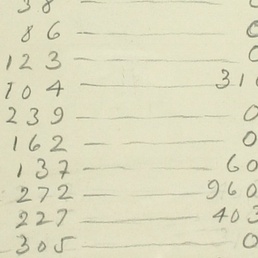 38
86 — 0
123 — 0
104 — 310
239 — 0
162 — 0
137 — 60
272 — 960
227 — 403
305 — 0